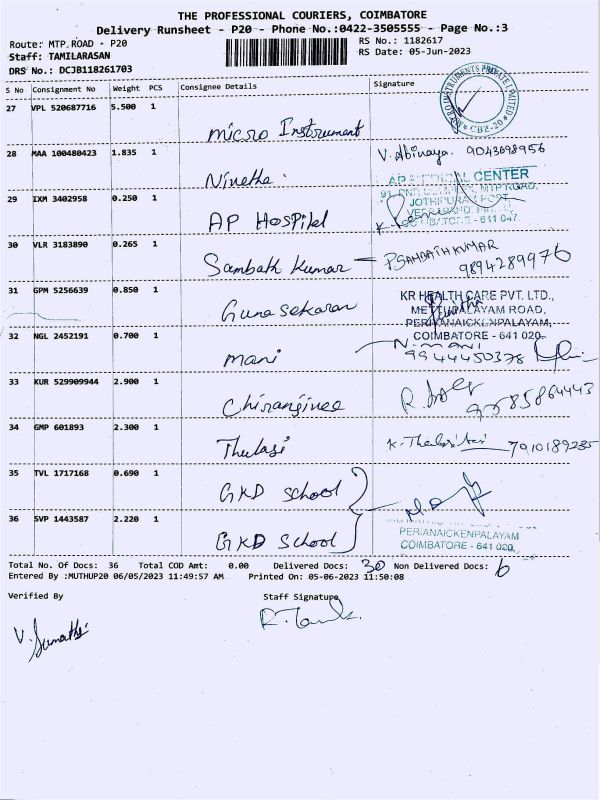 THE PROFESSIONAL COURIERS, COIMBATORE
Delivery Runsheet - P20 - Phone No.:0422-3505555 - Page No.:3
Route: MTP ROAD - P20
RS No.: 1182617
Staff: TAMILARASAN
RS Date: 05-Jun-2023
DRS No.: DCJB118261703
S No Consignment No Weight PCS Consignee Details Signature
27 VPL 520687716 5.500 1
Micro Instrument
28 MAA 100480423 1.835 1 V. Abinaya. 9043698956
Nivetha
29 IXM 3402958 0.250 1
AP Hospital
30 VLR 3183890 0.265 1
Sambath Kumar P.SAMBATHKUMAR
9894289976
31 GPM 5256639 0.850 1 KR HEALTH CARE PVT. LTD.,
Gunasekaran METTUPALAYAM ROAD,
PERIANAICKENPALAYAM,
32 NGL 2452191 0.700 1 COIMBATORE - 641 020.
Mani N. MANI
9944450378
33 KUR 529909944 2.900 1
Chiranjivee 9585864443
34 GMP 601893 2.300 1
Thulasi 7910189235
35 TVL 1717168 0.690 1
GKD School
36 SVP 1443587 2.220 1
GKD School PERIANAICKENPALAYAM
COIMBATORE - 641 020.
Total No. Of Docs: 36 Total COD Amt: 0.00 Delivered Docs: 30 Non Delivered Docs: 6
Entered By :MUTHUP20 06/05/2023 11:49:57 AM Printed On: 05-06-2023 11:50:08
Verified By Staff Signature
V. Sumathi